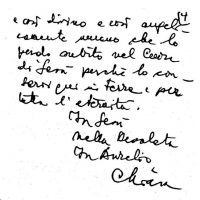 14
e così divino e così angeli
camente umano che lo
perdo subito nel Cuore
di Gesù perchè lo con
servi qui in terra e per
tutta l'eternità.
In Gesù
nella Desolata
In Aurelio
Chiara